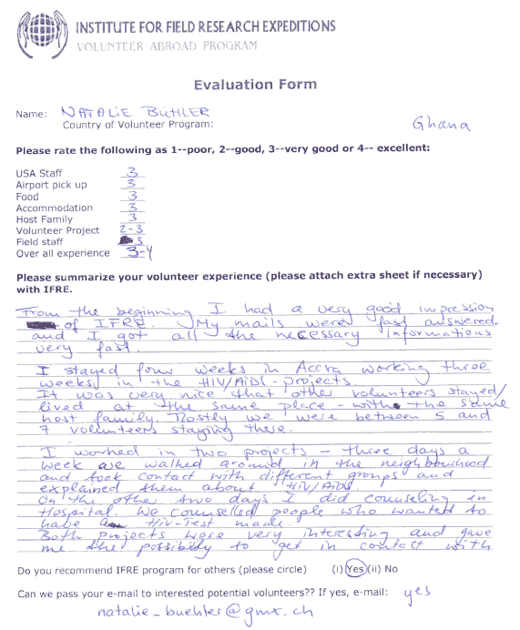 INSTITUTE FOR FIELD RESEARCH EXPEDITIONS
VOLUNTEER ABROAD PROGRAM
Evaluation Form
Name: NATALIE BÜHLER
Country of Volunteer Program: Ghana
Please rate the following as 1--poor, 2--good, 3--very good or 4-- excellent:
USA Staff 3
Airport pick up 3
Food 3
Accommodation 3
Host Family 3
Volunteer Project 2-3
Field staff 3
Over all experience 3-4
Please summarize your volunteer experience (please attach extra sheet if necessary)
with IFRE.
From the beginning I had a very good impression
of IFRE. My mails were fast answered
and I got all the necessary informations
very fast.
I stayed four weeks in Accra working three
weeks in the HIV/AIDS-projects.
It was very nice that other volunteers stayed/
lived at the same place - with the same
host family. Mostly we were between 5 and
7 volunteers staying there.
I worked in two projects - three days a
week we walked around in the neighbourhood
and took contact with different groups and
explained them about HIV/AIDS.
On the other two days I did counseling in
Hospital. We counselled people who wanted to
have a HIV-Test made.
Both projects were very interesting and gave
me the possibility to get in contact with
Do you recommend IFRE program for others (please circle) (i) Yes (ii) No
Can we pass your e-mail to interested potential volunteers?? If yes, e-mail: yes
natalie_buehler@gmx.ch